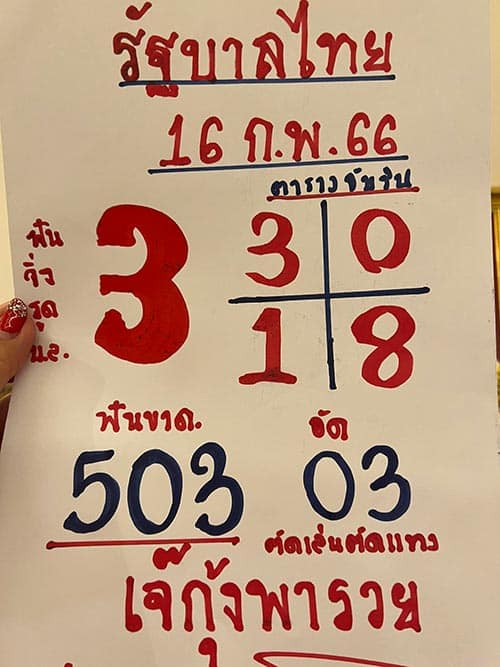 รัฐบาลไทย
16 ก.พ.66
ตาราง
ฟัน
วิ่ง
รูด
3
3 0
1 8
ฟันขาด.
503
อัด
03
คัดเล่นคัดแทง
เจ๊กุ้งพารวย